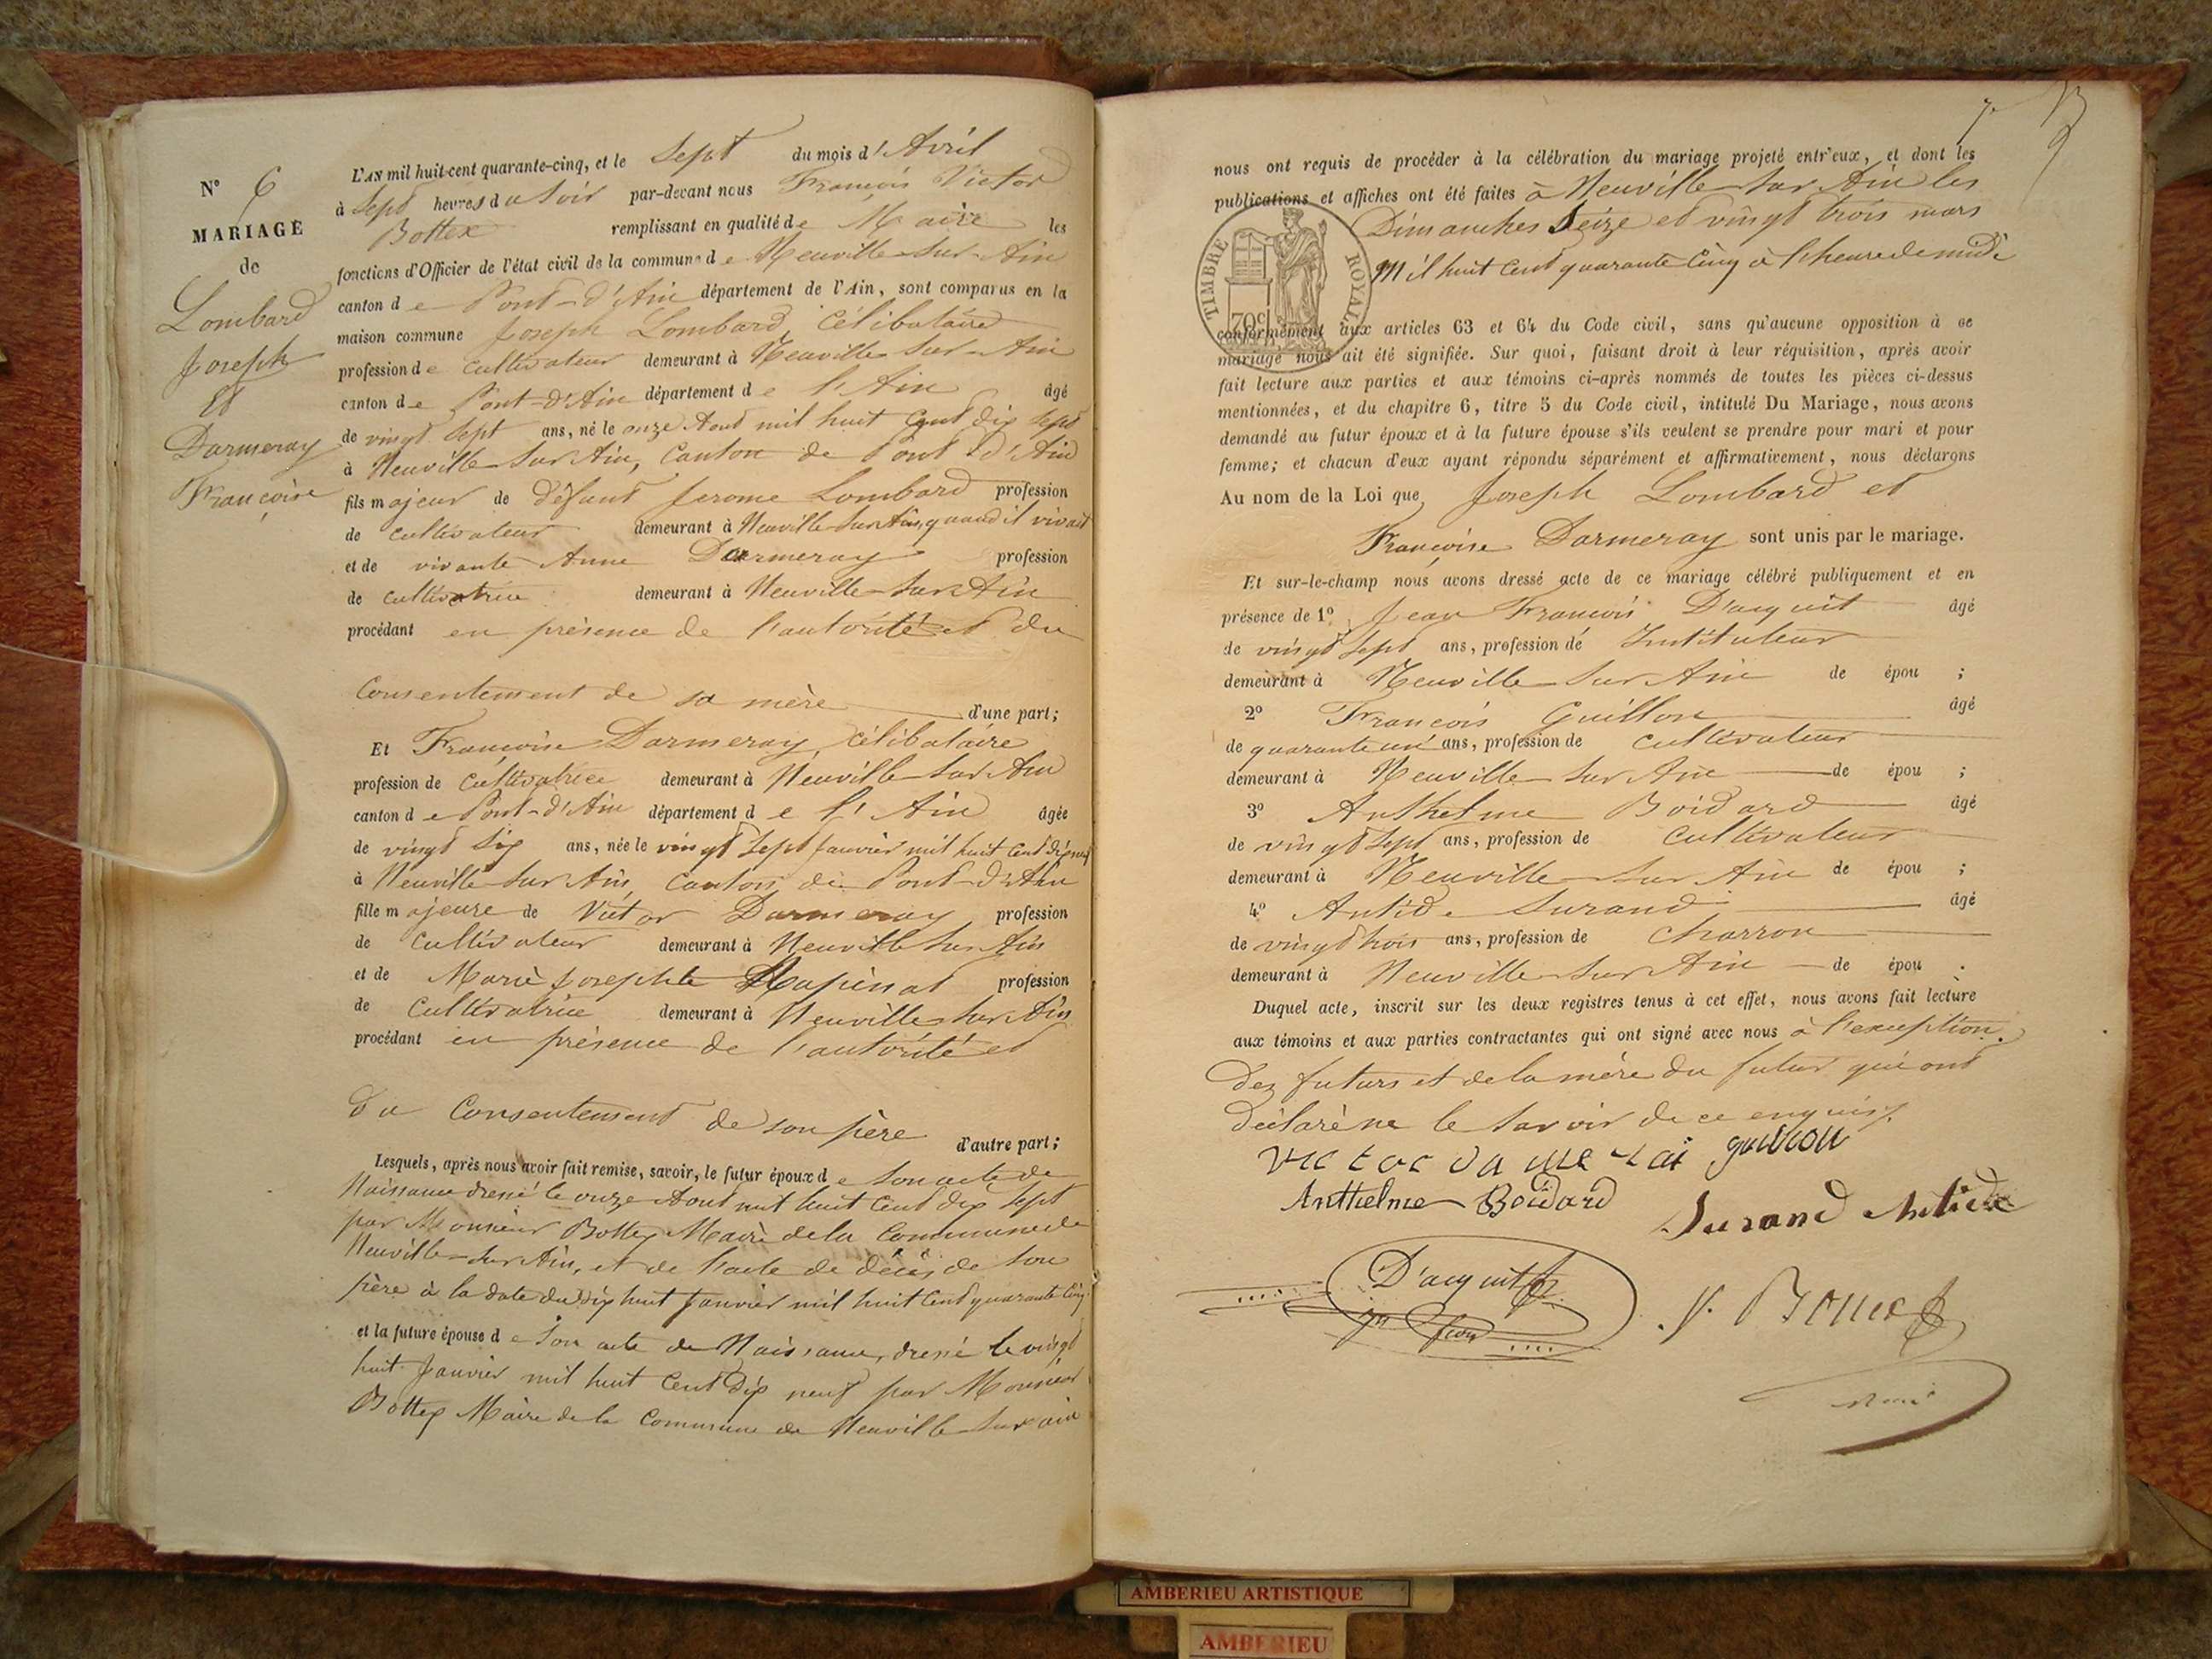 N° 6
MARIAGE
de
Lombard
Joseph
Et
Darmeray
Françoise
L'AN mil huit-cent quarante-cinq, et le Sept du mois d'Avril
à Sept heures du Soir par-devant nous François Victor
Bottex remplissant en qualité de Maire les
fonctions d'Officier de l'état civil de la commune de Neuville-Sur-Ain
canton de Pont-d'Ain département de l'Ain, sont comparus en la
maison commune Joseph Lombard, Célibataire
profession de Cultivateur demeurant à Neuville Sur-Ain
canton de Pont-d'Ain département de l'Ain âgé
de vingt Sept ans, né le onze Aout mil huit Cent dix Sept
à Neuville-Sur Ain, Canton de Pont d'Ain
fils majeur de Défunt Jerome Lombard profession
de Cultivateur demeurant à Neuville Sur Ain, quand il vivait
et de vivante Anne Darmeray profession
de Cultivatrice demeurant à Neuville-Sur Ain
procédant en présence de l'autorité et du
Consentement de sa mère d'une part;
Et Françoise Darmeray, Célibataire
profession de Cultivatrice demeurant à Neuville-Sur Ain
canton de Pont-d'Ain département de l'Ain âgée
de vingt Six ans, née le vingt Sept Janvier mil huit Cent dix neuf
à Neuville Sur Ain, Canton de Pont-d'Ain
fille majeure de Victor Darmeray profession
de Cultivateur demeurant à Neuville Sur Ain
et de Marie Josephte Rapinat profession
de Cultivatrice demeurant à Neuville Sur Ain
procédant en présence de l'autorité et
du Consentement de son père d'autre part;
Lesquels, après nous avoir fait remise, savoir, le futur époux de Son acte de
Naissance dressé le onze Aout mil huit Cent dix Sept
par Monsieur Bottex Maire de la Commune de
Neuville-Sur Ain, et de l'acte de décès de Son
père à la date du dix huit Janvier mil huit Cent quarante Cinq
et la future épouse de Son acte de Naissance, dressé le vingt
huit Janvier mil huit Cent Dix neuf par Monsieur
Bottex Maire de la Commune de Neuville Sur ain
nous ont requis de procéder à la célébration du mariage projeté entr'eux, et dont les
publications et affiches ont été faites à Neuville-Sur Ain les
Dimanches Seize et vingt trois mars
Mil huit Cent quarante Cinq à l'heure de midi
TIMBRE ROYAL
70c
conformément aux articles 63 et 64 du Code civil, sans qu'aucune opposition à ce
mariage nous ait été signifiée. Sur quoi, faisant droit à leur réquisition, après avoir
fait lecture aux parties et aux témoins ci-après nommés de toutes les pièces ci-dessus
mentionnées, et du chapitre 6, titre 5 du Code civil, intitulé Du Mariage, nous avons
demandé au futur époux et à la future épouse s'ils veulent se prendre pour mari et pour
femme; et chacun d'eux ayant répondu séparément et affirmativement, nous déclarons
Au nom de la Loi que Joseph Lombard et
Françoise Darmeray sont unis par le mariage.
Et sur-le-champ nous avons dressé acte de ce mariage célébré publiquement et en
présence de 1° Jean François D'acquit âgé
de vingt Sept ans, profession de Instituteur
demeurant à Neuville Sur Ain de épou ;
2° François Guillon âgé
de quarante un ans, profession de Cultivateur
demeurant à Neuville Sur Ain de épou ;
3° Anthelme Boidard âgé
de vingt Sept ans, profession de Cultivateur
demeurant à Neuville Sur Ain de épou ;
4° Antide Durand âgé
de vingt trois ans, profession de Charron
demeurant à Neuville Sur Ain de épou .
Duquel acte, inscrit sur les deux registres tenus à cet effet, nous avons fait lecture
aux témoins et aux parties contractantes qui ont signé avec nous à l'exception
des futurs et de la mère du futur qui ont
déclaré ne le Savoir de ce enquis.
victor guillon
Anthelme Boidard
Durand Antide
D'acquit
AMBERIEU ARTISTIQUE
AMBERIEU